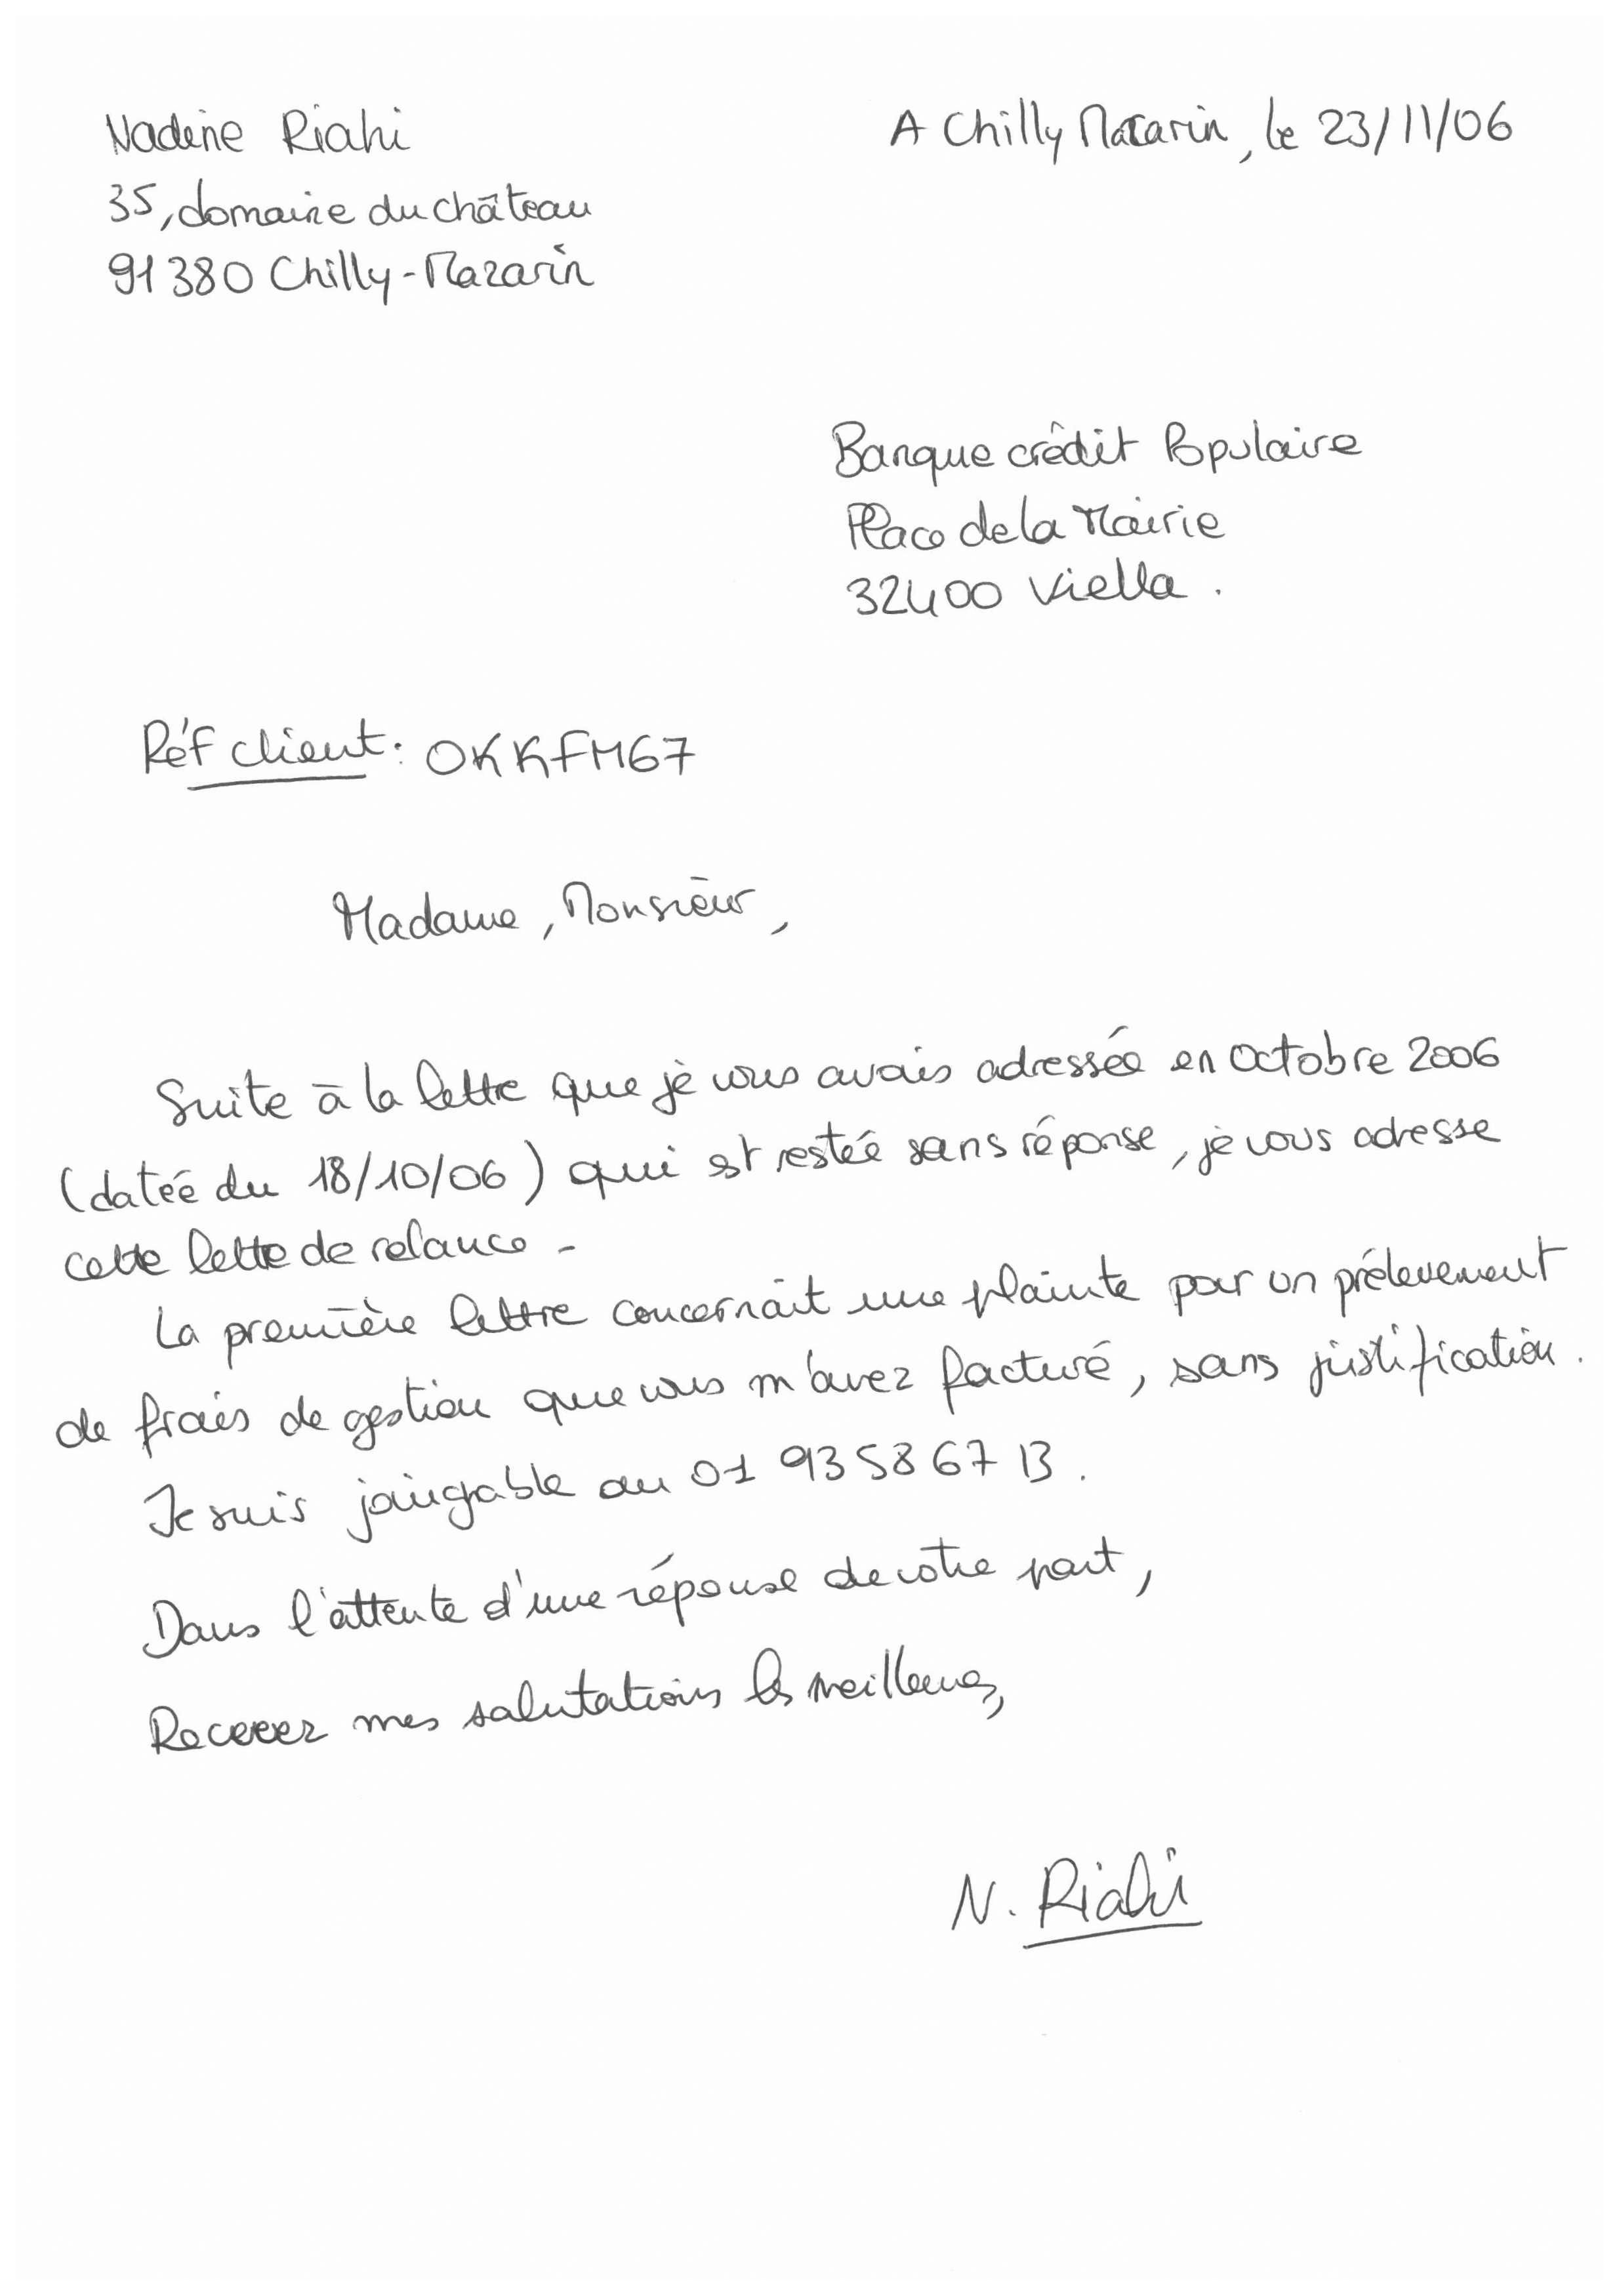 Nadine Riahi
A Chilly Mazarin, le 23/11/06
35, domaine du château
91380 Chilly-Mazarin
Banque crédit Populaire
Place de la Mairie
32400 Viella.
Réf client : OKKFM67
Madame, Monsieur,
Suite à la lettre que je vous avais adressée en octobre 2006
(datée du 18/10/06) qui est restée sans réponse, je vous adresse
cette lettre de relance.
La première lettre concernait une plainte pour un prélevement
de frais de gestion que vous m'avez facturé, sans justification.
Je suis joingable au 01 93 58 67 13.
Dans l'attente d'une réponse de votre part,
Recevez mes salutations les meilleures,
N. Riahi